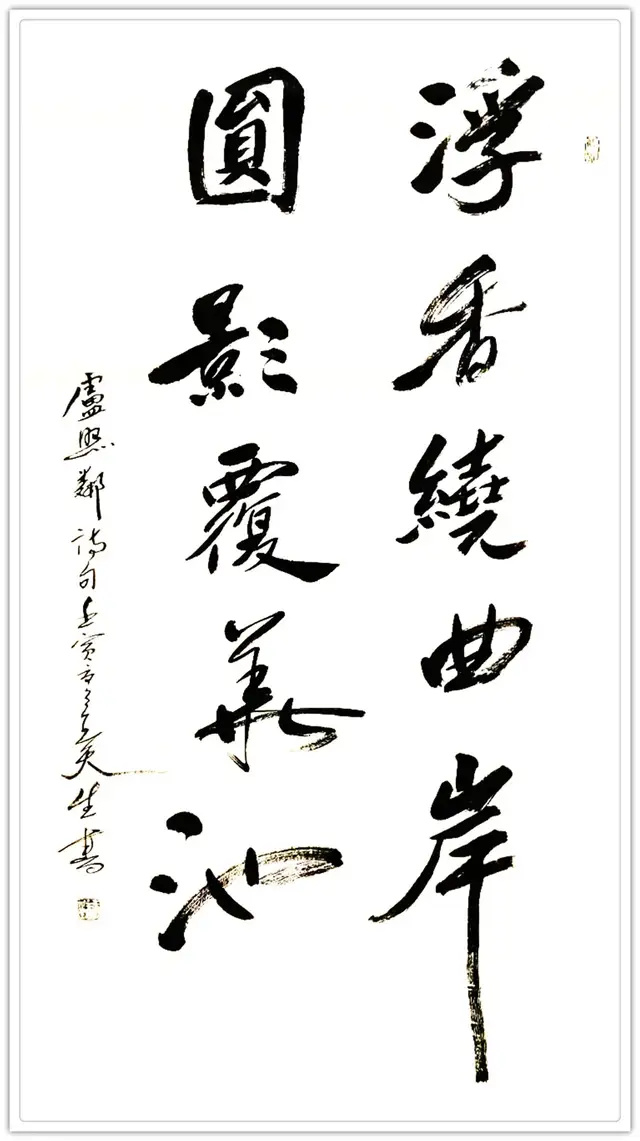 浮香繞曲岸
圓影覆華池
盧照鄰詩句壬寅生書